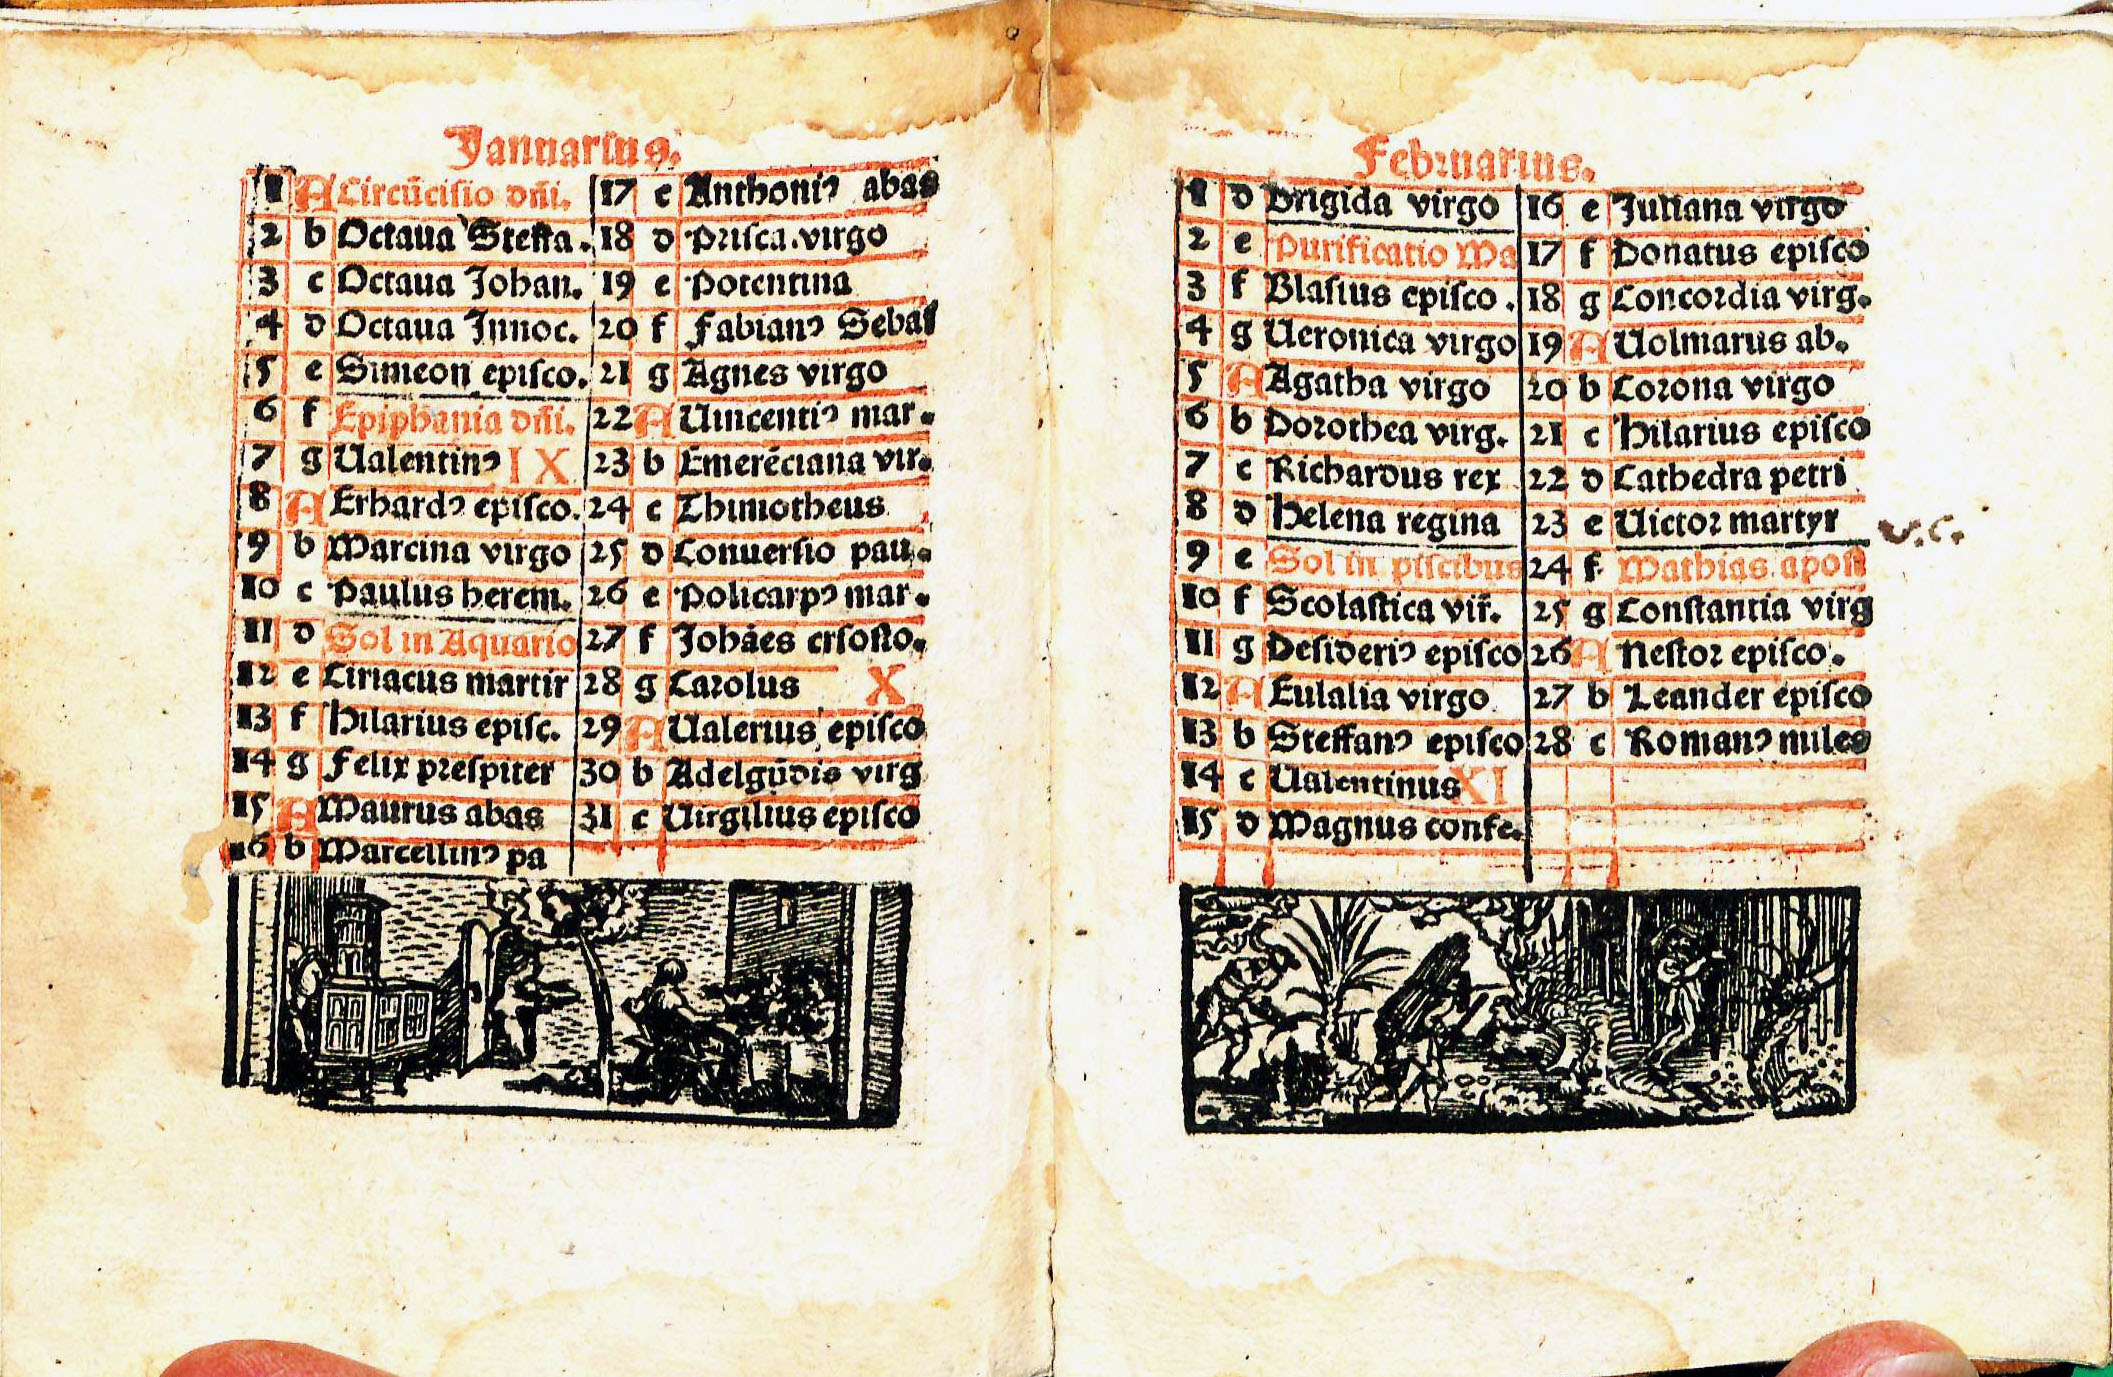 Januarius.
1 A Circūcisio dñi.
2 b Octaua Steffa.
3 c Octaua Johan.
4 d Octaua Innoc.
5 e Simeon episco.
6 f Epiphania dñi.
7 g Ualentinꝰ IX
8 A Erhardꝰ episco.
9 b Marcina virgo
10 c Paulus herem.
11 d Sol in Aquario
12 e Ciriacus martir
13 f Hilarius episc.
14 g Felix prespiter
15 A Maurus abas
16 b Marcellinꝰ pa
17 c Anthoniꝰ abas
18 d Prisca virgo
19 e Potentina
20 f Fabianꝰ Sebas
21 g Agnes virgo
22 A Uincentiꝰ mar.
23 b Emerēciana vir.
24 c Thimotheus
25 d Conuersio pau.
26 e Policarpꝰ mar.
27 f Johāes crsosto.
28 g Carolus X
29 A Ualerius episco
30 b Adelgūdis virg
31 c Uirgilius episco
Februarius.
1 d Brigida virgo
2 e Purificatio Ma
3 f Blasius episco.
4 g Ueronica virgo
5 A Agatha virgo
6 b Dorothea virg.
7 c Richardus rex
8 d Helena regina
9 e Sol in piscibus
10 f Scolastica vir̄.
11 g Desideriꝰ episco
12 A Eulalia virgo
13 b Steffanꝰ episco
14 c Ualentinus XI
15 d Magnus confe.
16 e Juliana virgo
17 f Donatus episco
18 g Concordia virg.
19 A Uolmarus ab.
20 b Corona virgo
21 c Hilarius episco
22 d Cathedra petri
23 e Uictor martyr
v.c.
24 f Mathias apost
25 g Constantia virg
26 A Nestor episco.
27 b Leander episco
28 c Romanꝰ miles